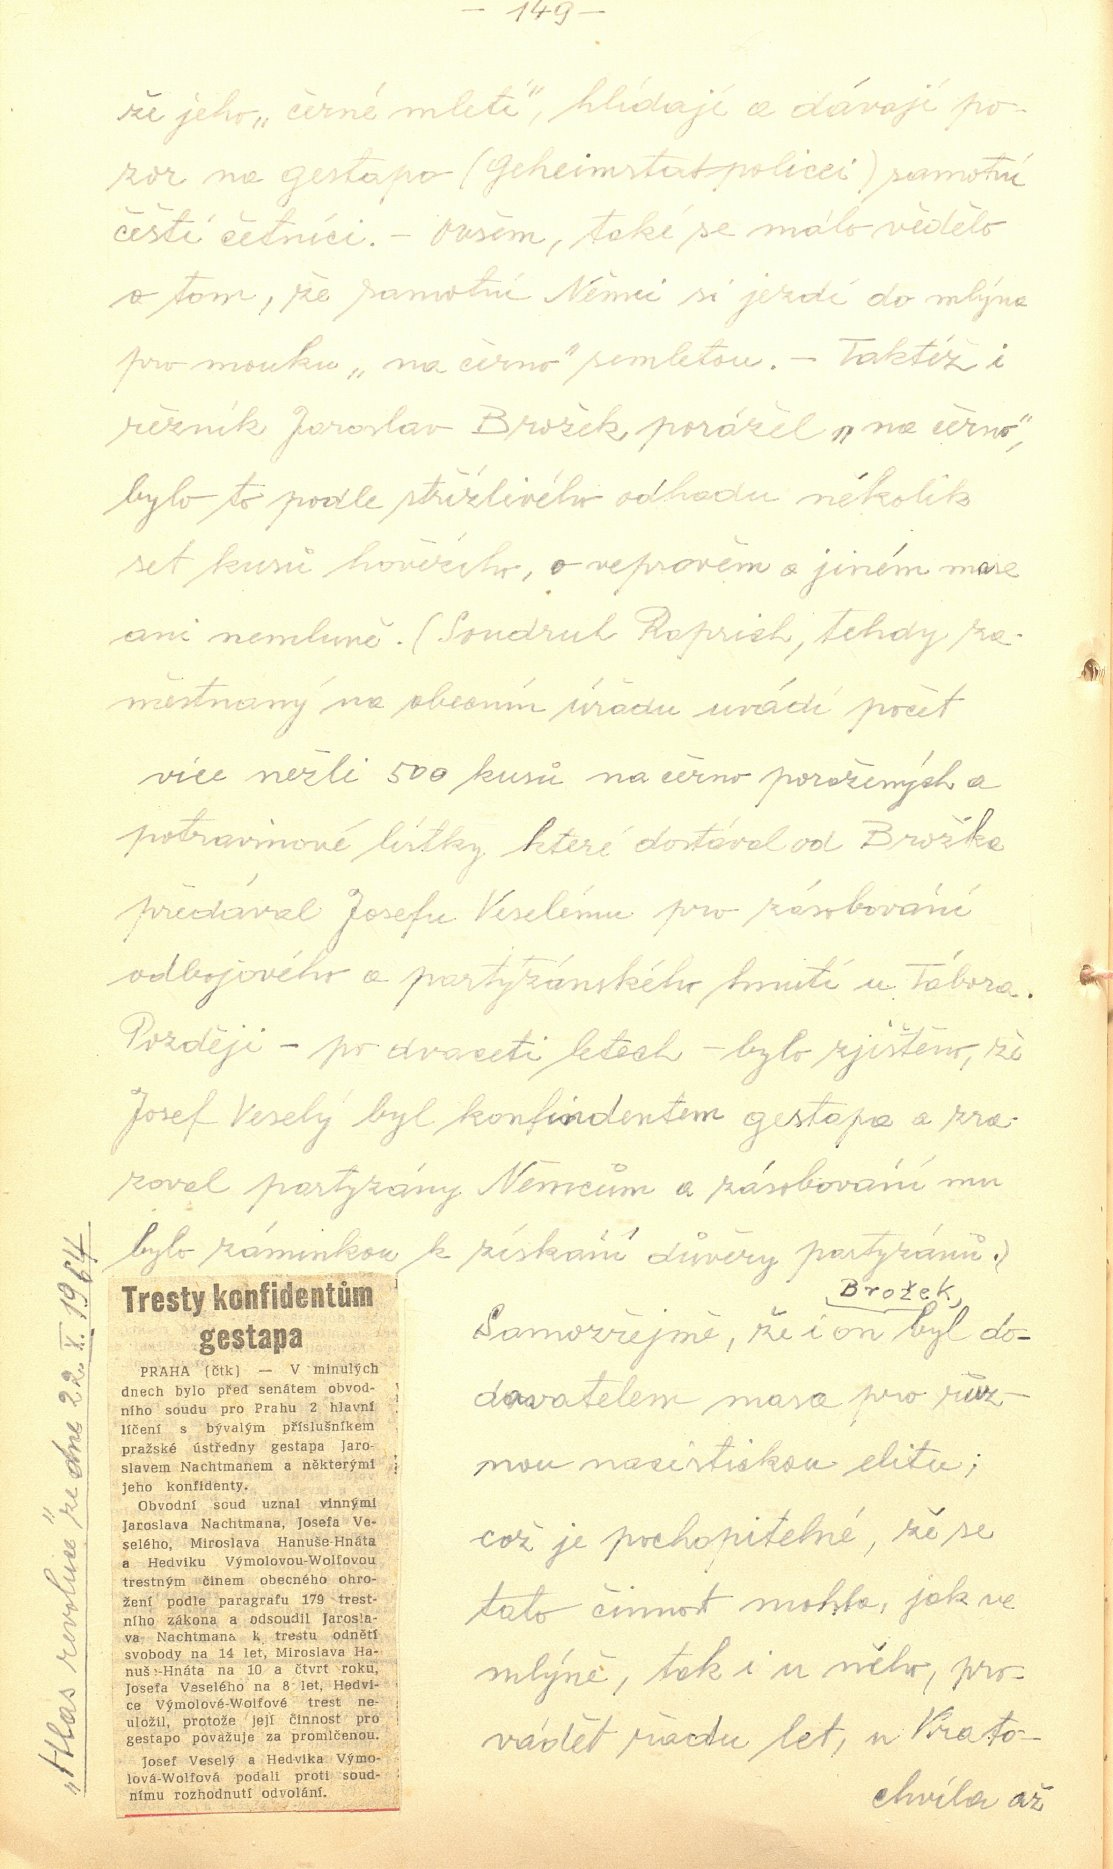 – 149 –
že jeho „černé mletí“, hlídají a dávají po-
zor na gestapo (Geheimstatspolicei) samotní
čeští četníci. – Ovšem, také se málo vědělo
o tom, že samotní Němci si jezdí do mlýna
pro mouku „na černo“ semletou. – Taktéž i
řezník Jaroslav Brožek, porážel „na černo“,
bylo to podle střízlivého odhadu několik
set kusů hovězího, o vepřovém a jiném mase
ani nemluvě. (Soudruh Raprich, tehdy za-
městnaný na obecním úřadu uvádí počet
více nežli 500 kusů na černo poražených a
potravinové lístky které dostával od Brožka
předával Josefu Veselému pro zásobování
odbojového a partyzánského hnutí u Tábora.
Později – po dvaceti letech – bylo zjištěno, že
Josef Veselý byl konfindentem gestapa a zra-
zoval partyzány Němcům a zásobování mu
bylo záminkou k získání důvěry partyzánů.)
Brožek,
Samozřejmě, že i on byl do-
davatelem masa pro růz-
nou nacistickou elitu;
což je pochopitelné, že se
tato činnost mohla, jak ve
mlýně, tak i u něho, pro-
vádět řadu let, u Krato-
chvíla až
Tresty konfidentům
gestapa
PRAHA (čtk) — V minulých
dnech bylo před senátem obvod-
ního soudu pro Prahu 2 hlavní
líčení s bývalým příslušníkem
pražské ústředny gestapa Jaro-
slavem Nachtmanem a některými
jeho konfidenty.
Obvodní soud uznal vinnými
Jaroslava Nachtmana, Josefa Ve-
selého, Miroslava Hanuše-Hnáta
a Hedviku Výmolovou-Wolfovou
trestným činem obecného ohro-
žení podle paragrafu 179 trest-
ního zákona a odsoudil Jarosla-
va Nachtmana k trestu odnětí
svobody na 14 let, Miroslava Ha-
nuše-Hnáta na 10 a čtvrt roku,
Josefa Veselého na 8 let, Hedvi-
ce Výmolové-Wolfové trest ne-
uložil, protože její činnost pro
gestapo považuje za promlčenou.
Josef Veselý a Hedvika Výmo-
lová-Wolfová podali proti soud-
nímu rozhodnutí odvolání.
„Hlas revoluce“ ze dne 22. X. 1964